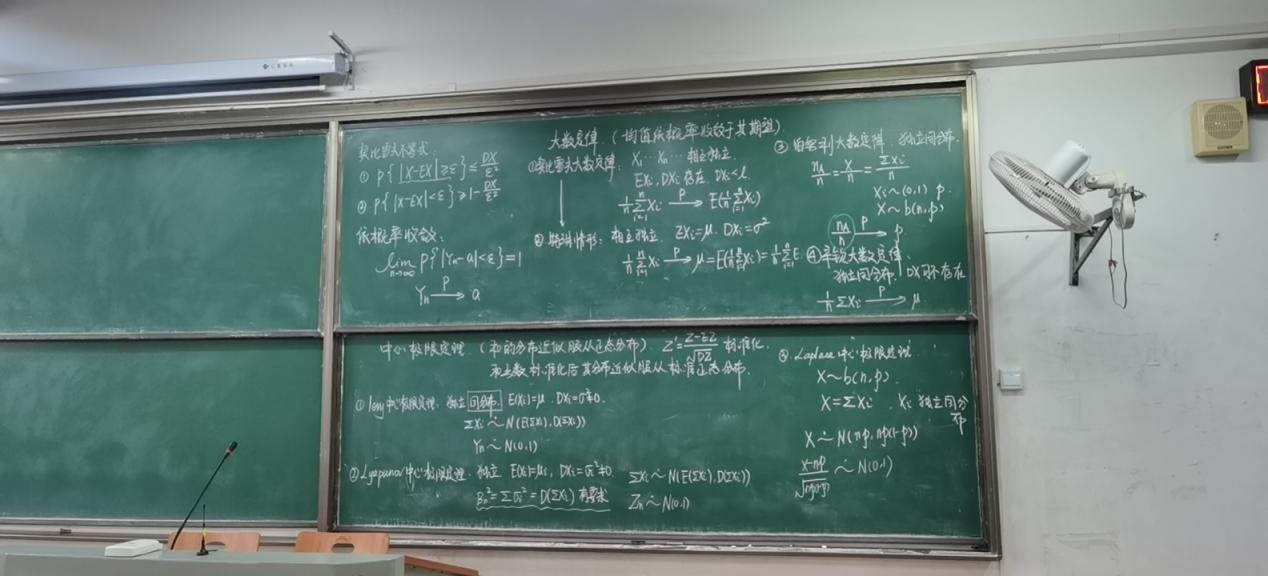 切比雪夫不等式.
① P{|X-EX|≥ε}≤DX/ε²
② P{|X-EX|<ε}≥1-DX/ε²
依概率收敛:
lim n→∞ P{|Yn-a|<ε}=1
Yn P→ a
大数定律.(均值依概率收敛于其期望)
①切比雪夫大数定律: X₁…Xn… 相互独立.
EXi, DXi 存在. DXi<l
1/n Σ(i=1→n) Xi P→ E(1/n Σ(i=1→n) Xi)
② 特殊情形: 相互独立. EXi=μ. DXi=σ²
1/n Σ(i=1→n) Xi P→ μ=E(1/n Σ(i=1→n) Xi)=1/n Σ(i=1→n) E.
③ 伯努利大数定律. 独立同分布.
nA/n = X/n = ΣXi/n
Xi~(0,1) p.
X~b(n,p)
nA/n P→ p
④ 辛钦大数定律.
独立同分布. DX可不存在
1/n ΣXi P→ μ
中心极限定理.(和的分布近似服从正态分布) Z'=(Z-EZ)/√DZ 标准化.
标准化后其分布近似服从标准正态分布.
① levy中心极限定理. 独立同分布. E(Xi)=μ. DXi=σ²≠0.
ΣXi ~ N(E(ΣXi), D(ΣXi))
Yn ~ N(0,1)
② Lyapunov中心极限定理. 独立 E(Xi)=μi, DXi=σi²≠0.
Bn²=Σσi²=D(ΣXi) 有要求
ΣXi ~ N(E(ΣXi), D(ΣXi))
Zn ~ N(0,1)
③ Laplace中心极限定理.
X~b(n,p).
X=ΣXi. Xi 独立同分布
X ~ N(np, np(1-p))
(X-np)/√(np(1-p)) ~ N(0,1)